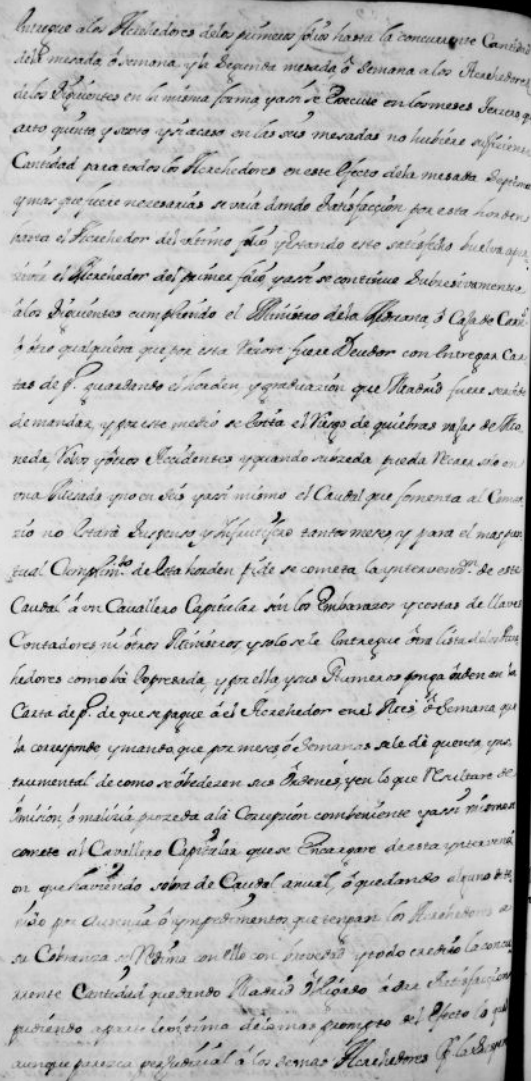 entregue a los Acrehedores de los primeros folios hasta la concurrente Cantidad
dela mesada, ó semana y la Segunda mesada, ó Semana a los Acrehedores
de los Siguientes en la misma forma, y assi se Execute en los meses Tercero q
arto quinto y sexto, y si acaso en las seis mesadas no hubiere suficiente
Cantidad para todos los Acrehedores en este Efecto dela mesada Septima
y mas que fuere necesarias se vaia dando Satisfaccion por esta horden
hasta el Acrehedor del ultimo folio y Estando este satisfecho buelva a
el Acrehedor del primer folio, y assi se continue Subcesivamente
a los Siguientes cumpliendo el Ministro dela Aduana, ó Casa de
ó otro qualquiera que por esta Razon fuere Deudor con Entregar Car
tas de p.º guardando el horden, y graduazion que Madrid fuere
de mandar, y por este medio se Evita el Riesgo de quiebras vajas de Mo
neda, Robos y otros Accidentes, y quando subzeda pueda Recaer solo en
vna Mesada y no en Seis y assi mismo el Caudal que fomenta al Comer
zio no Estara Suspenso, y Infrutifero tantos meses, y para el mas pun
tual Cumplim.to de Esta horden pide se cometa la yntervenz.on de este
Caudal á vn Cavallero Capitular sin los Embarazos y costas de llaves
Contadores ni otros Ministros, y solo se le Entregue otra lista delos Acre
hedores como bá Expresada, y por ella, y sus Numeros ponga orden en la
Carta de p.º de que se pague á el Acrehedor en el Mes, ó Semana que
la corresponde y manda que por meses, ó Semanas se le dé quenta, yns
trumental de como se obedezen sus Ordenes, y en lo que Resultare de
ómision, ó malizia prozeda ala Correpzion combeniente y assi mismo
comete al Cavallero Capitular que se Encargare de esta yntervenzi
on que haviendo sobra de Caudal anual, ó quedando alguno
por Ausenzia ó ympedimentos que tengan los Acrehedores a
su Cobranza se Redima con ello con brevedad y todo credito la concu
rrente Cantidad quedando Madrid Obligado á dar Satisfaccion
pudiendo a parte lexitima delo mas prompto del Efecto lo qual
aunque parezca perjudizial á los demas Acrehedores